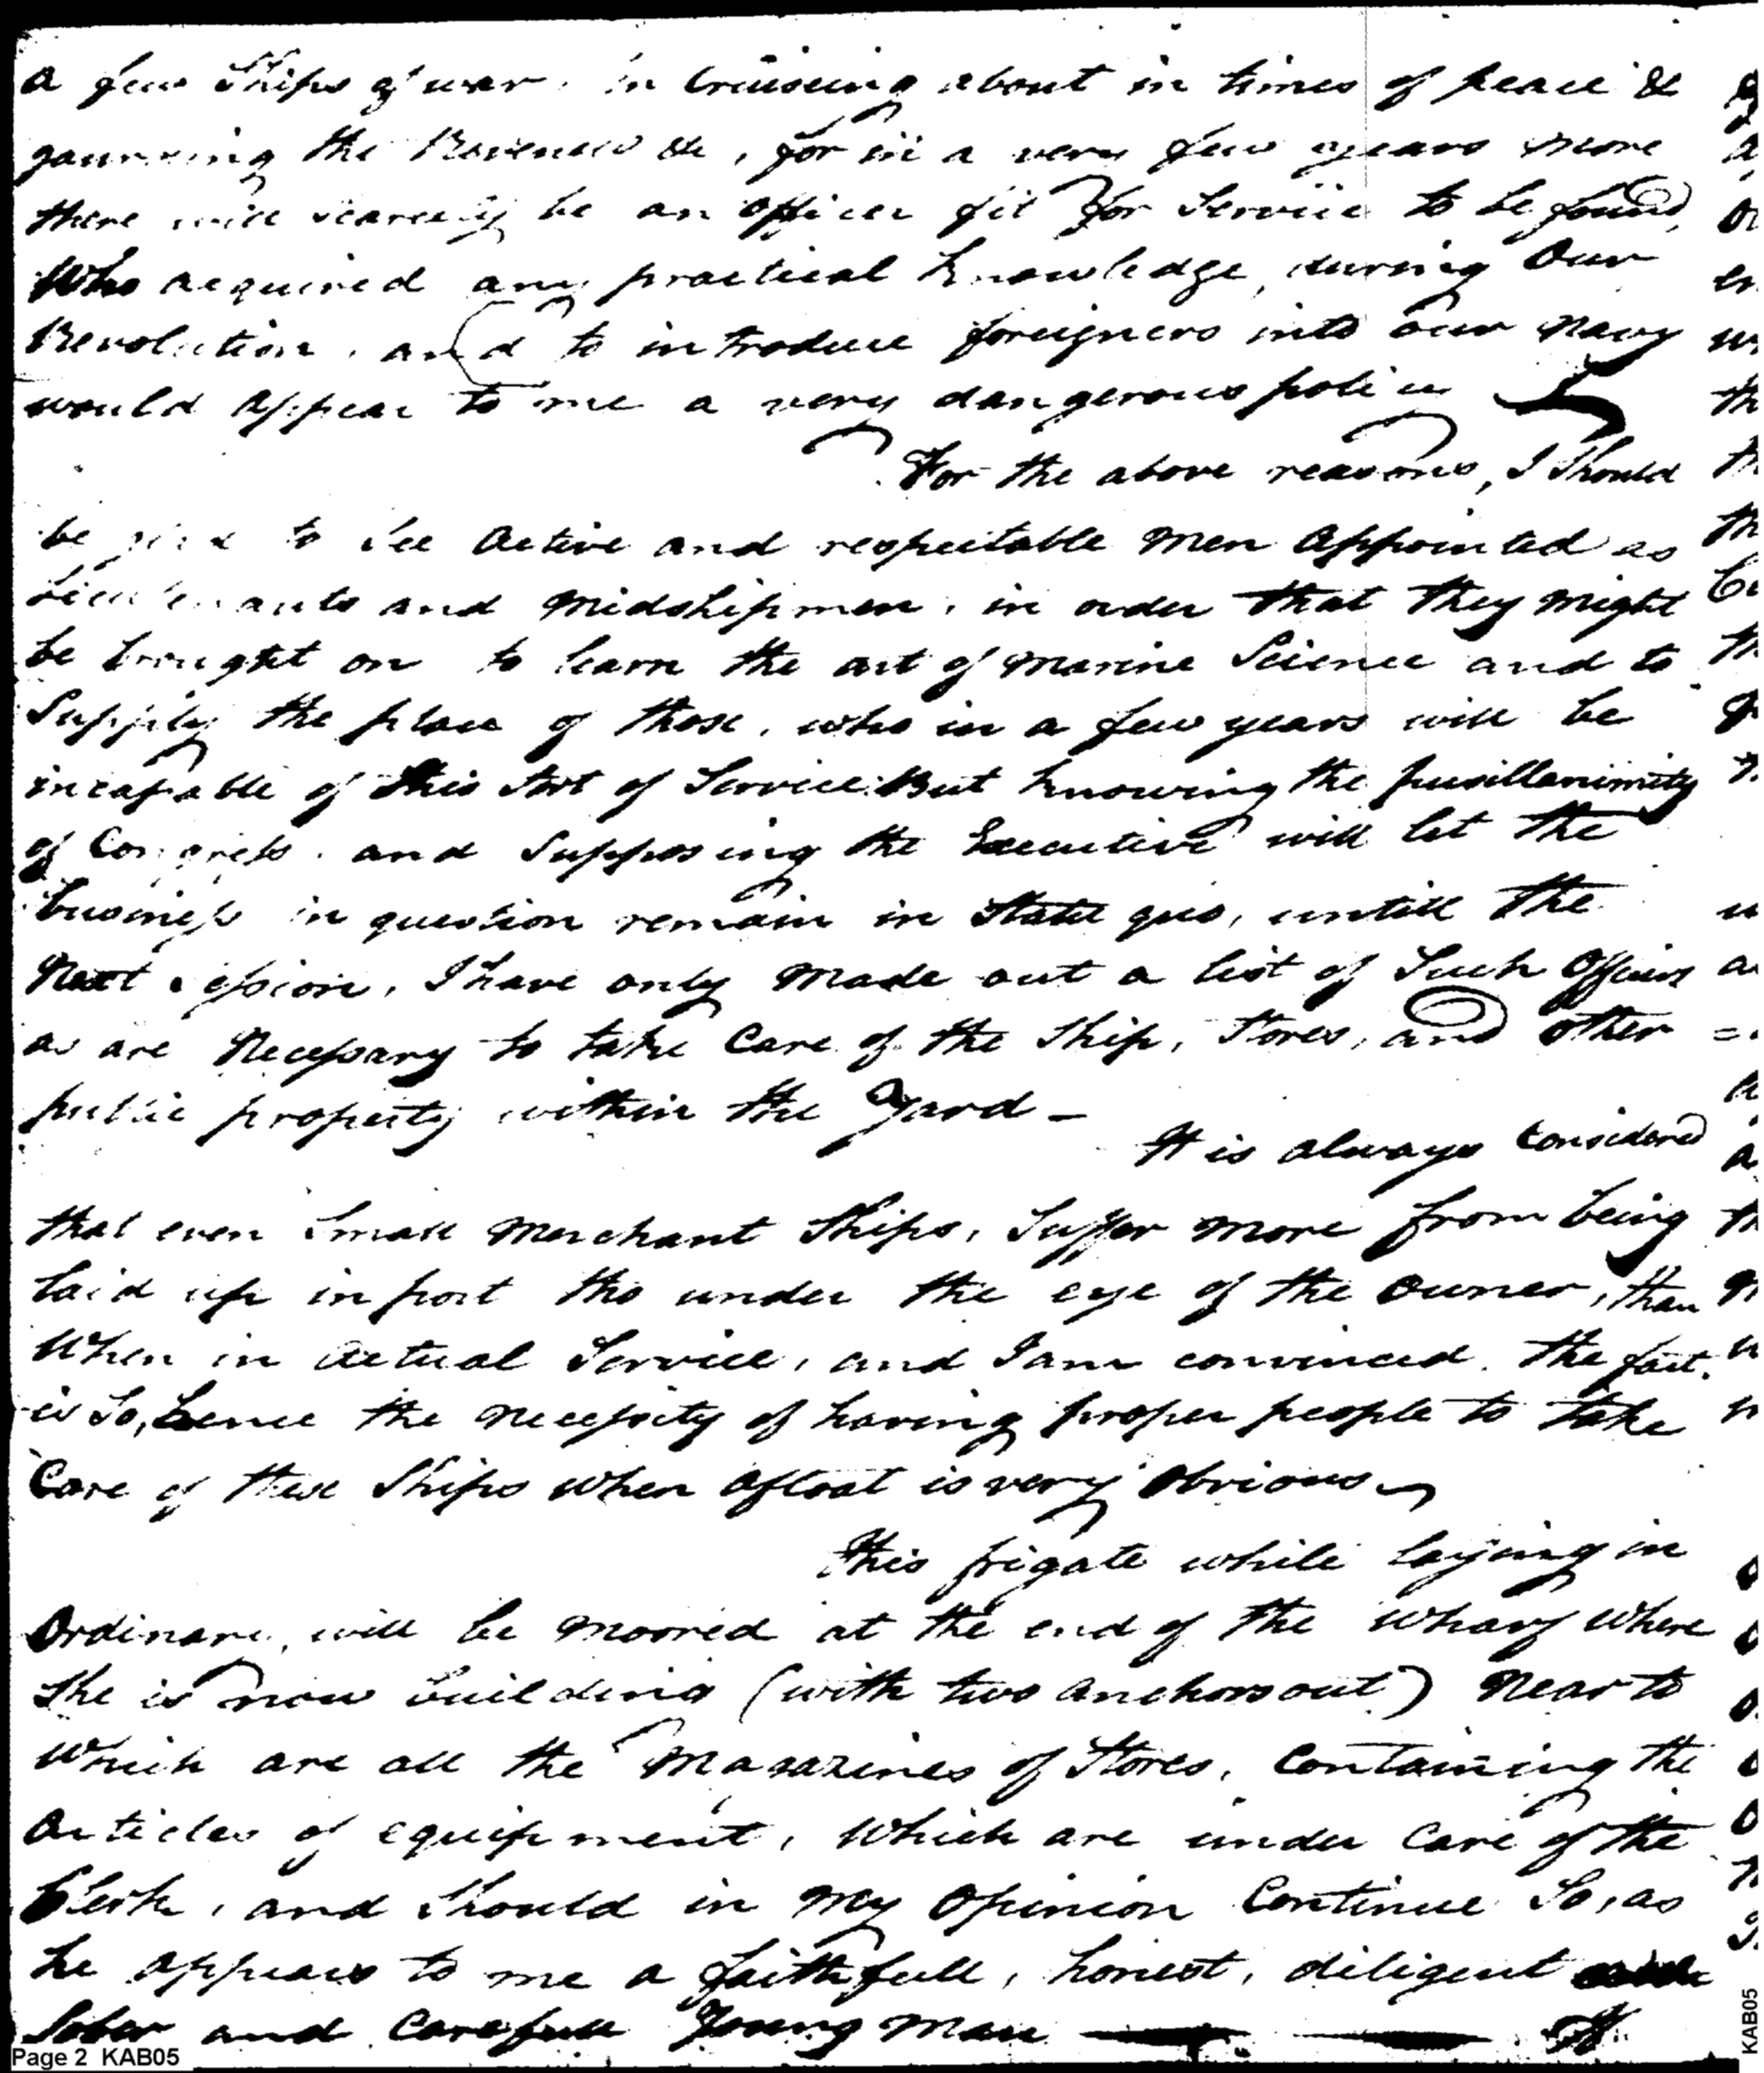 a few Ships of war. in Cruiseing about in times of peace &
the Revenue &c, for in a very few years more
there will scarcely be an officer fit for Service to be found,
Who acquired any practical knowledge, during Our
Revolution, and to introduce foreigners into our Navy
would appear to me a very dangerous policy
For the above reasons, I Should
be glad to See Active and respectable Men Appointed as
Lieutenants and Midshipmen, in order that they might
be brought on to learn the art of Marine Science and to
Supply the place of those, who in a few years will be
incapable of this Sort of Service. But knowing the pusillanimity
of Congress, and Supposing the Executive will let the
business in question remain in State quo, untill the
Next Session, I have only Made out a list of Such Officers
as are Necessary to take Care of the Ship, Stores, and other
public property within the Yard —
It is always Considered
that even Small Merchant Ships, Suffer more from being
laid up in port tho under the eye of the Owner, than
When in actual Service, and I am convinced. the fact.
is So, hence the necessity of having proper people to take
Care of these Ships when afloat is very Obvious
This frigate while laying in
Ordinary, will be moored at the end of the wharf where
She is now building (with two anchors out) Near to
Which are all the Magazines of Stores, Containing the
Articles of equipment, Which are under Care of the
Clerk, and Should in My Opinion Continue So, as
he appears to me a faithfull, honest, diligent
Sober and Carefull Young Man
Page 2 KAB05
KAB05